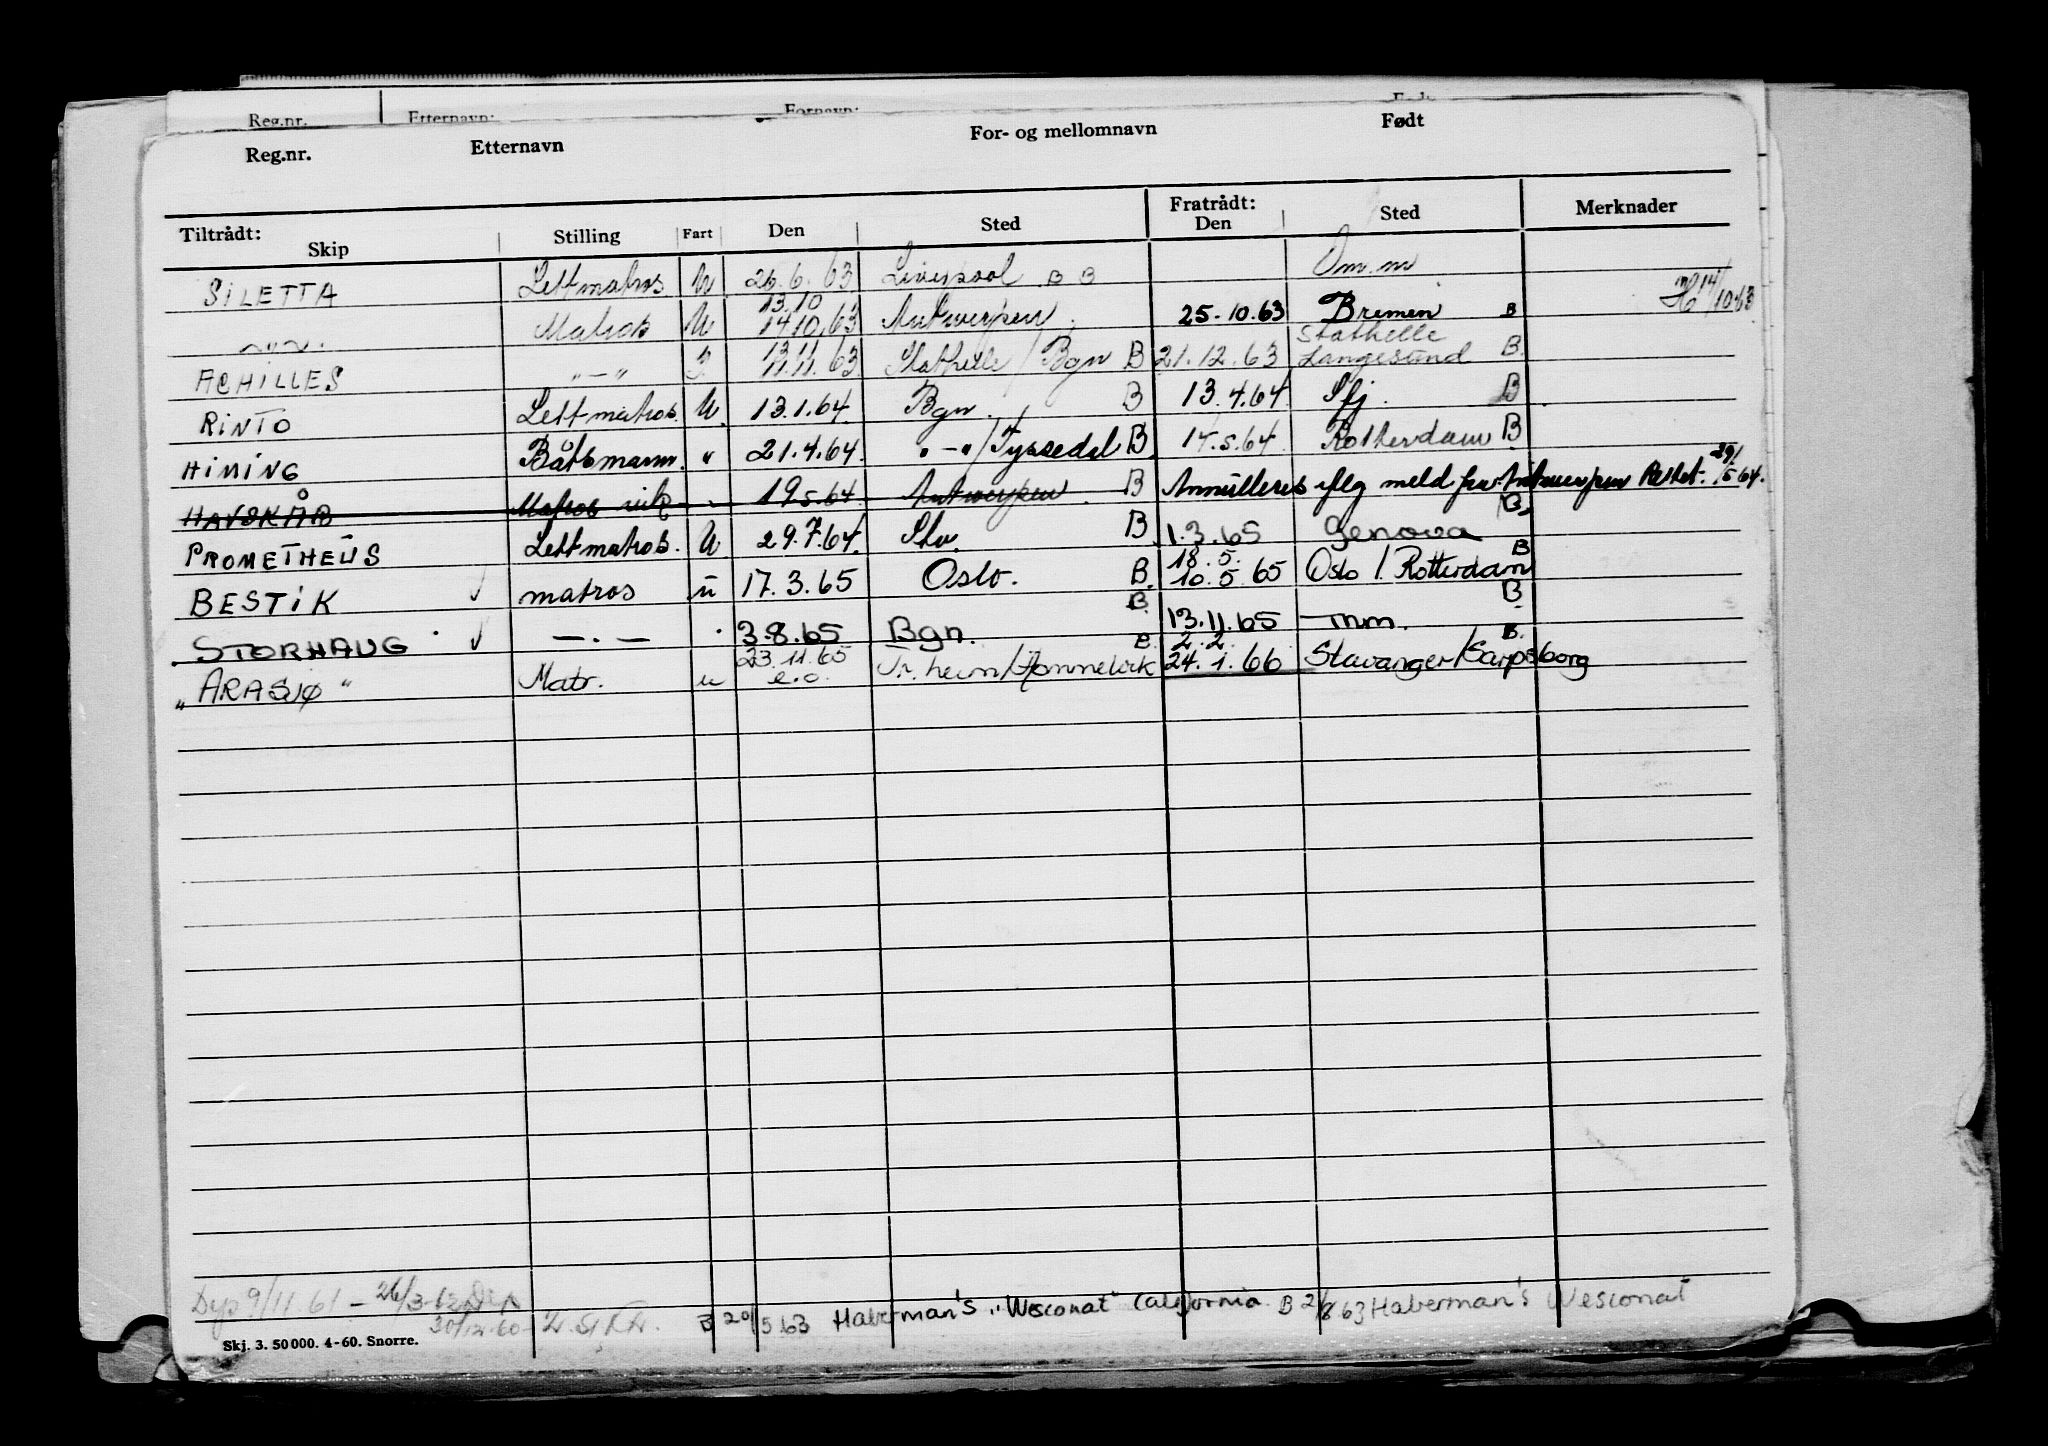 Reg.nr. Etternavn: Fornavn:
Reg.nr. Etternavn For- og mellomnavn Født
Tiltrådt: Skip Stilling Fart Den Sted Fratrådt: Den Sted Merknader
SILETTA Lettmatros U 26.6.63 Liverpool B B Om.m
13.10
— " — Matros U 14.10.63 Antwerpen 25.10.63 Bremen B H 14/10.63
13.11 Stathelle
ACHILLES " — " 11.11.63 Stathelle / Bgn B 21.12.63 Langesund B.
RINTO Lettmatros U 13.1.64. Bgn. B 13.4.64 Sfj. B
HIMING Båtsmann. " 21.4.64. " — " / Tyssedal B 14.5.64 Rotterdam B
HAVSKÅR Matros 19.5.64 Antwerpen. B Annulleres iflg meld fra Antwerpen 29/5 64.
PROMETHEUS Lettmatros. U 29.7.64. Stv. B 1.3.65 Genova B
18.5.
BESTIK matros u 17.3.65 Oslo. B. 10.5.65 Oslo /. Rotterdam B
STORHAUG — . — 3.8.65 Bgn. B. 13.11.65 Thm. B
23.11.65 2.2.
"ARASJØ" Matr. u e.o. Tr.heim/Hommelvik B 24.1.66 Stavanger/Sarpsborg B.
Dyp 9/11.61 — 26/3-62
30/12.60- B 20/5 63 Haberman's "Wesconat" California B 2/8 63 Haberman's Wesconat
Skj. 3. 50 000. 4-60. Snorre.